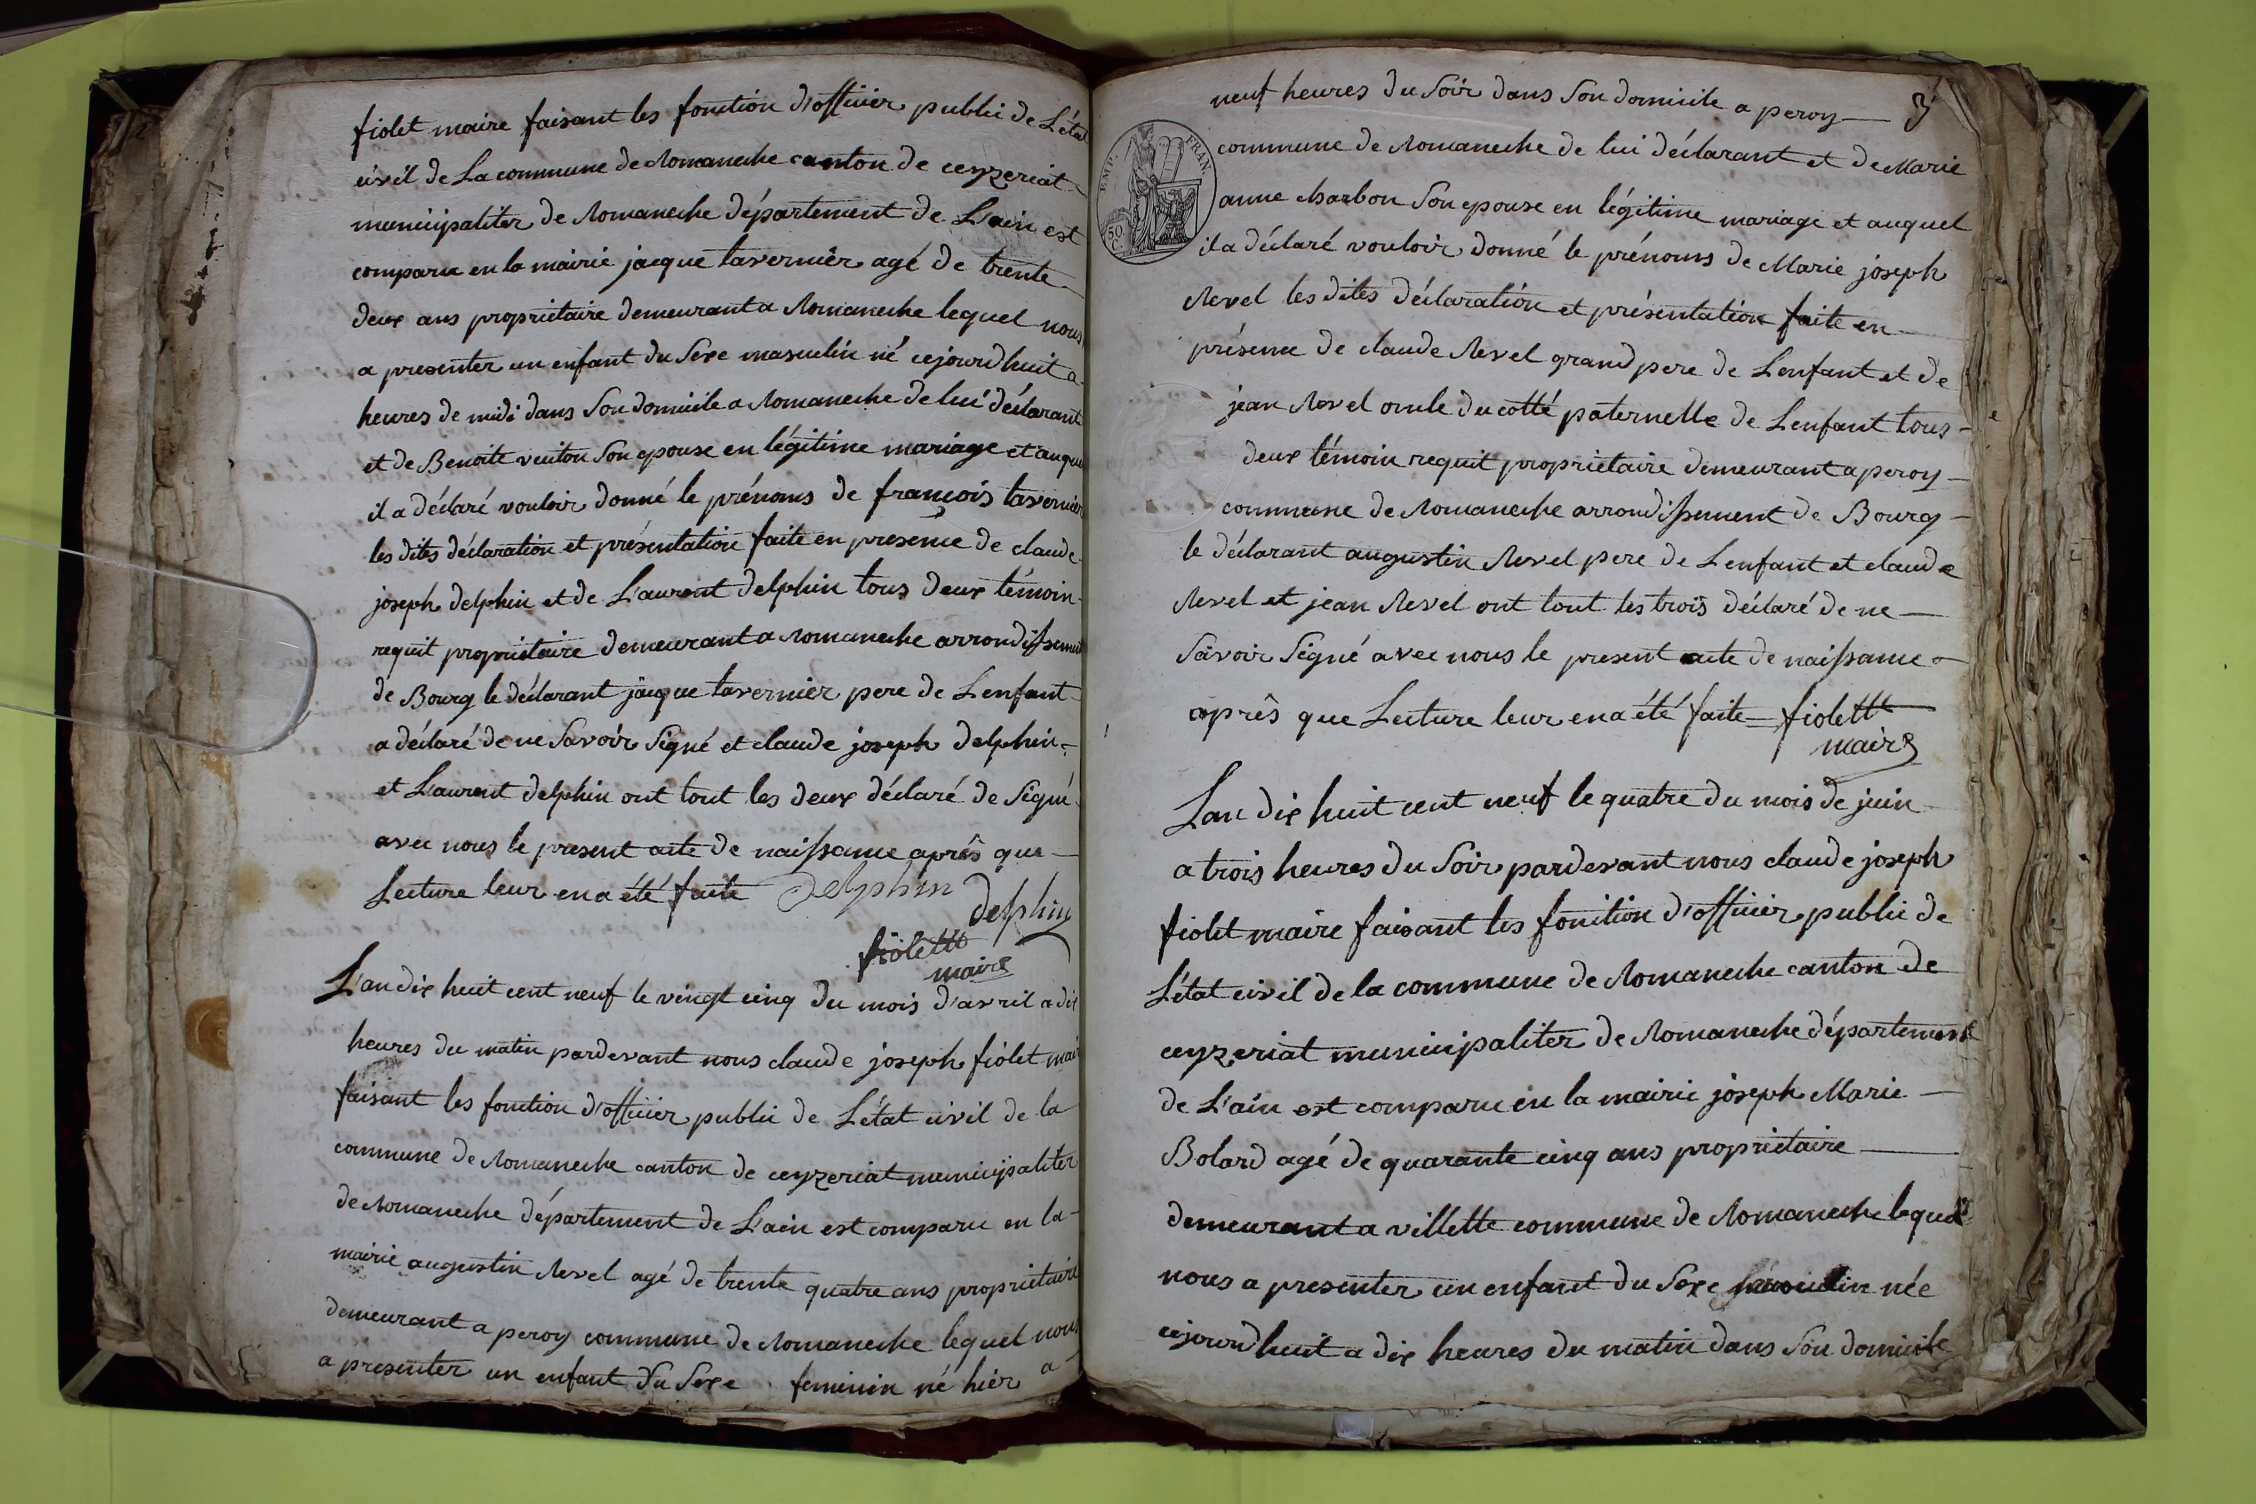 fiolet maire faisant les fonction d'officier public de L'état
civil de La commune de Romaneche canton de ceyzeriat
municipaliter de Romaneche département de L'ain est
comparu en la mairie jacque tavernier agé de trente
deux ans proprietaire demeurant a Romaneche lequel nous
a presenter un enfant du Sexe masculin né cejourdhuit a
heures de midi dans Son domicile a Romaneche de lui déclarant
et de Benoite venton Son epouse en légitime mariage et auquel
il a déclaré vouloir donné le prénoms de françois tavernier
les dites déclaration et présentation faite en presence de claude
joseph delphin et de Laurent delphin tous deux témoin
requit proprietaire demeurant a Romaneche arrondissement
de Bourg le déclarant jacque tavernier pere de Lenfant
a déclaré de ne Savoir Signé et claude joseph delphin
et Laurent delphin ont tout les deux déclaré de Signé
avec nous le present acte de naissance après que
Lecture leur en a été faite Delphin
delphin
fiolett
maire
L'an dix huit cent neuf le vingt cinq du mois d'avril a dix
heures du matin pardevant nous claude joseph fiolet maire
faisant les fonction d'officier public de L'état civil de la
commune de Romaneche canton de ceyzeriat municipaliter
de Romaneche département de L'ain est comparu en la
mairie augustin Revel agé de trente quatre ans proprietaire
demeurant a peroy commune de Romaneche lequel nous
a presenter un enfant du Sexe feminin né hier a
neuf heures du Soir dans Son domicile a peroy 3
EMP. FRAN
50 C.
commune de Romaneche de lui déclarant et de Marie
anne charbon Son epouse en légitime mariage et auquel
il a déclaré vouloir donné le prénoms de Marie joseph
Revel les dites déclaration et présentation faite en
présence de claude Revel grand pere de Lenfant et de
jean Revel oncle du cotté paternelle de Lenfant tous
deux témoin requit proprietaire demeurant a peroy
commune de Romaneche arrondissement de Bourg
le déclarant augustin Revel pere de Lenfant et claude
Revel et jean Revel ont tout les trois déclaré de ne
Savoir Signé avec nous le present acte de naissance
après que Lecture leur en a été faite fiolett
maire
Lan dix huit cent neuf le quatre du mois de juin
a trois heures du Soir pardevant nous claude joseph
fiolet maire faisant les fonction d'officier public de
L'état civil de la commune de Romaneche canton de
ceyzeriat municipaliter de Romaneche département
de L'ain est comparu en la mairie joseph Marie
Bolard agé de quarante cinq ans proprietaire
demeurant a villette commune de Romaneche lequel
nous a presenter un enfant du Sexe masculin née
cejourdhuit a dix heures du matin dans Son domicile